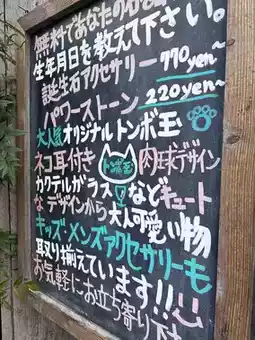 無料であなたの石
生年月日を教えて下さい。
誕生石アクセサリー 770yen~
パワーストーン 220yen~
大人気オリジナルトンボ玉
ネコ耳付き トンボ玉 肉球デザイン
カクテルグラスなどキュート
なデザインから大人可愛い物
キッズ・メンズアクセサリーも
取り揃えています!!
お気軽にお立ち寄り下